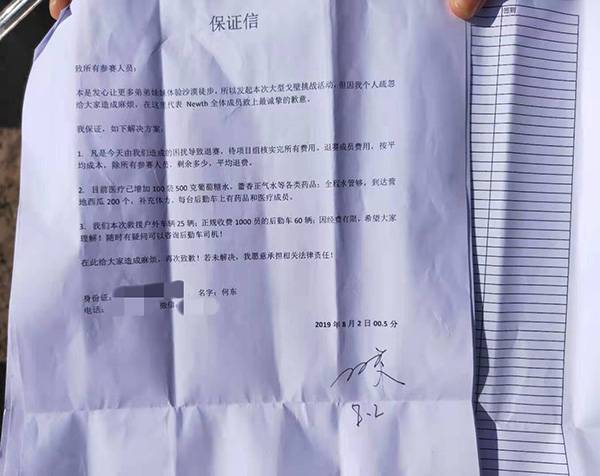 保证信
签到
致所有参赛人员:
本是发心让更多弟弟妹妹体验沙漠徒步,所以发起本次大型戈壁挑战活动,但因我个人疏忽
给大家造成麻烦,在这里代表 Newth 全体成员致上最诚挚的歉意。
我保证,如下解决方案:
1. 凡是今天由我们造成的困扰导致退赛,待项目组核实完所有费用,退赛成员费用,按平
均成本,除所有参赛人员,剩余多少,平均退费。
2. 目前医疗已增加 100 袋 500 克葡萄糖水,藿香正气水等各类药品;全程水管够,到达营
地西瓜 200 个,补充体力,每台后勤车上有药品和医疗成员。
3. 我们本次救援户外车辆 25 辆;正规收费 1000 员的后勤车 60 辆;因经费有限,希望大家
理解!随时有疑问可以咨询后勤车司机!
在此给大家造成麻烦,再次致歉!若未解决,我愿意承担相关法律责任!
身份证: 名字:何东
电话: 微信
2019 年 8 月 2 日 00.5 分
8.2